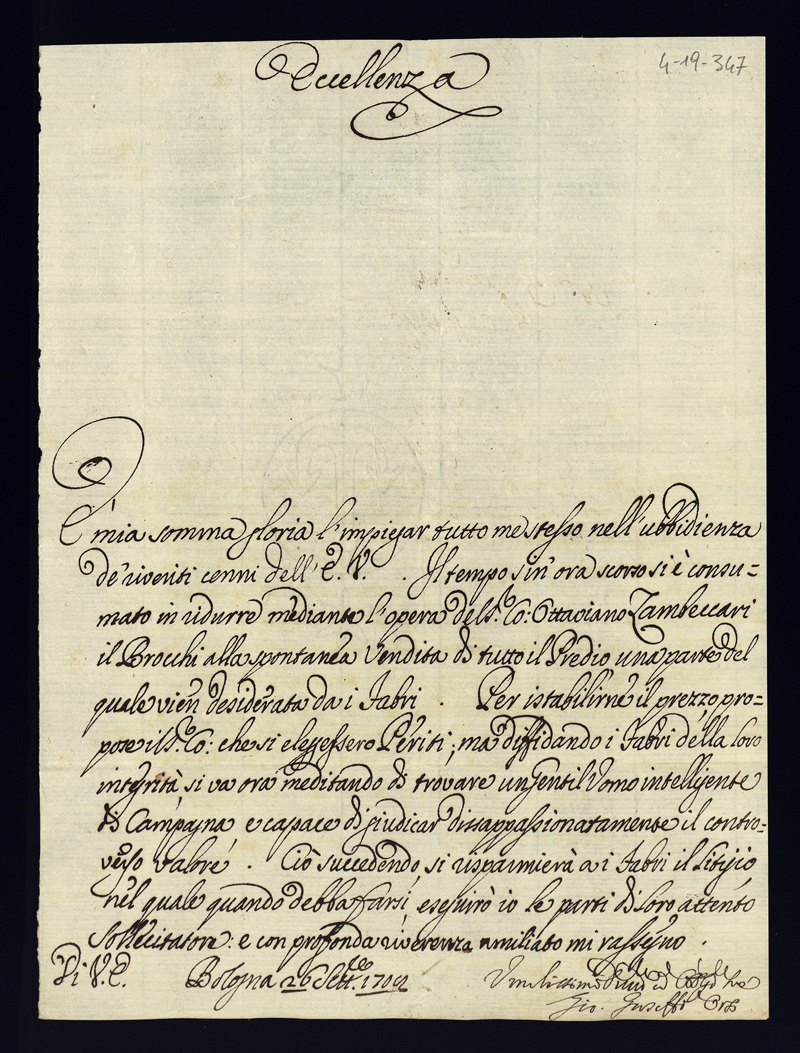 4-19-347
Eccellenza
È mia somma gloria l'impiegar tutto me stesso nell'ubbidienza
de' riveriti cenni dell'E. V. . Il tempo sin' ora scorso si è consu=
mato in ridurre mediante l'opera del S.r Co: Ottaviano Zambeccari
il Brocchi alla spontanea vendita di tutto il Predio una parte del
quale vien desiderata da i Fabri . Per istabilirne il prezzo pro=
pose il S.r Co: che si elegessero Periti ; ma diffidando i Fabri della loro
integrità, si va ora meditando di trovare un Gentil Uomo intelligente
di Campagna e capace di giudicar dissappassionatamente il contro=
verso valore . Ciò succedendo si risparmierà a i Fabri il litigio
nel quale quando debba farsi, eseguirò io le parti di loro attento
sollecitatore : e con profonda riverenza umiliato mi rassegno .
Di V. E. Bologna 26 Sett.bre
Gio. Giuseffo